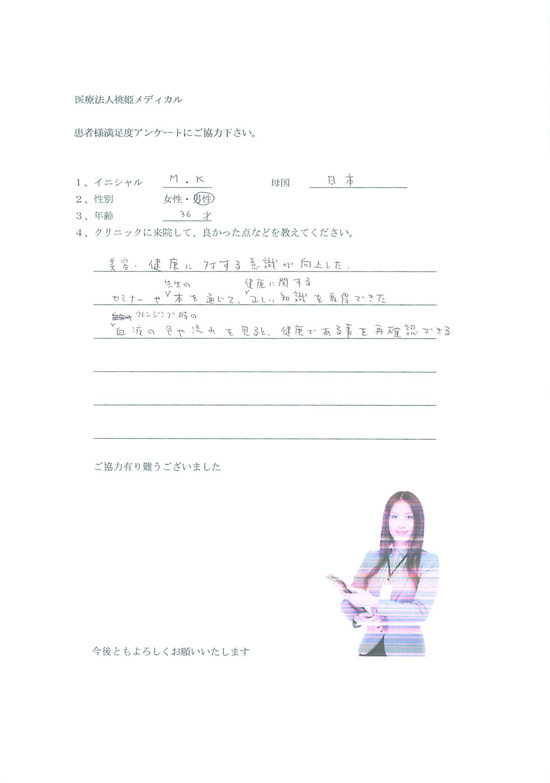 医療法人桃姫メディカル
患者様満足度アンケートにご協力下さい。
1、イニシャル M.K 母国 日本
2、性別 女性・男性
3、年齢 36 才
4、クリニックに来院して、良かった点などを教えてください。
美容・健康に対する意識が向上した。
セミナーや先生の本を通じて、健康に関する正しい知識を取得できた
クレンジング時の血液の色や流れを見ると、健康である事を再確認できる
ご協力有り難うございました
今後ともよろしくお願いいたします